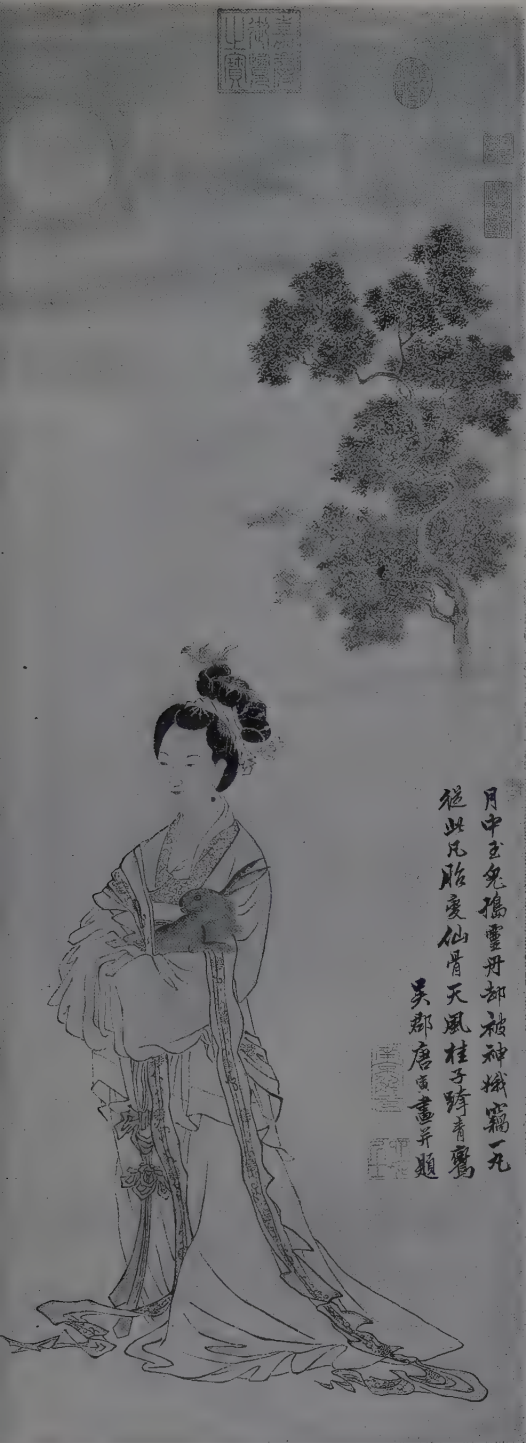 嘉慶
御覽
之寶
月中玉兔搗靈丹却被神娥竊一丸
從此凡胎變仙骨天風桂子跨青鸞
吳郡唐寅畫并題